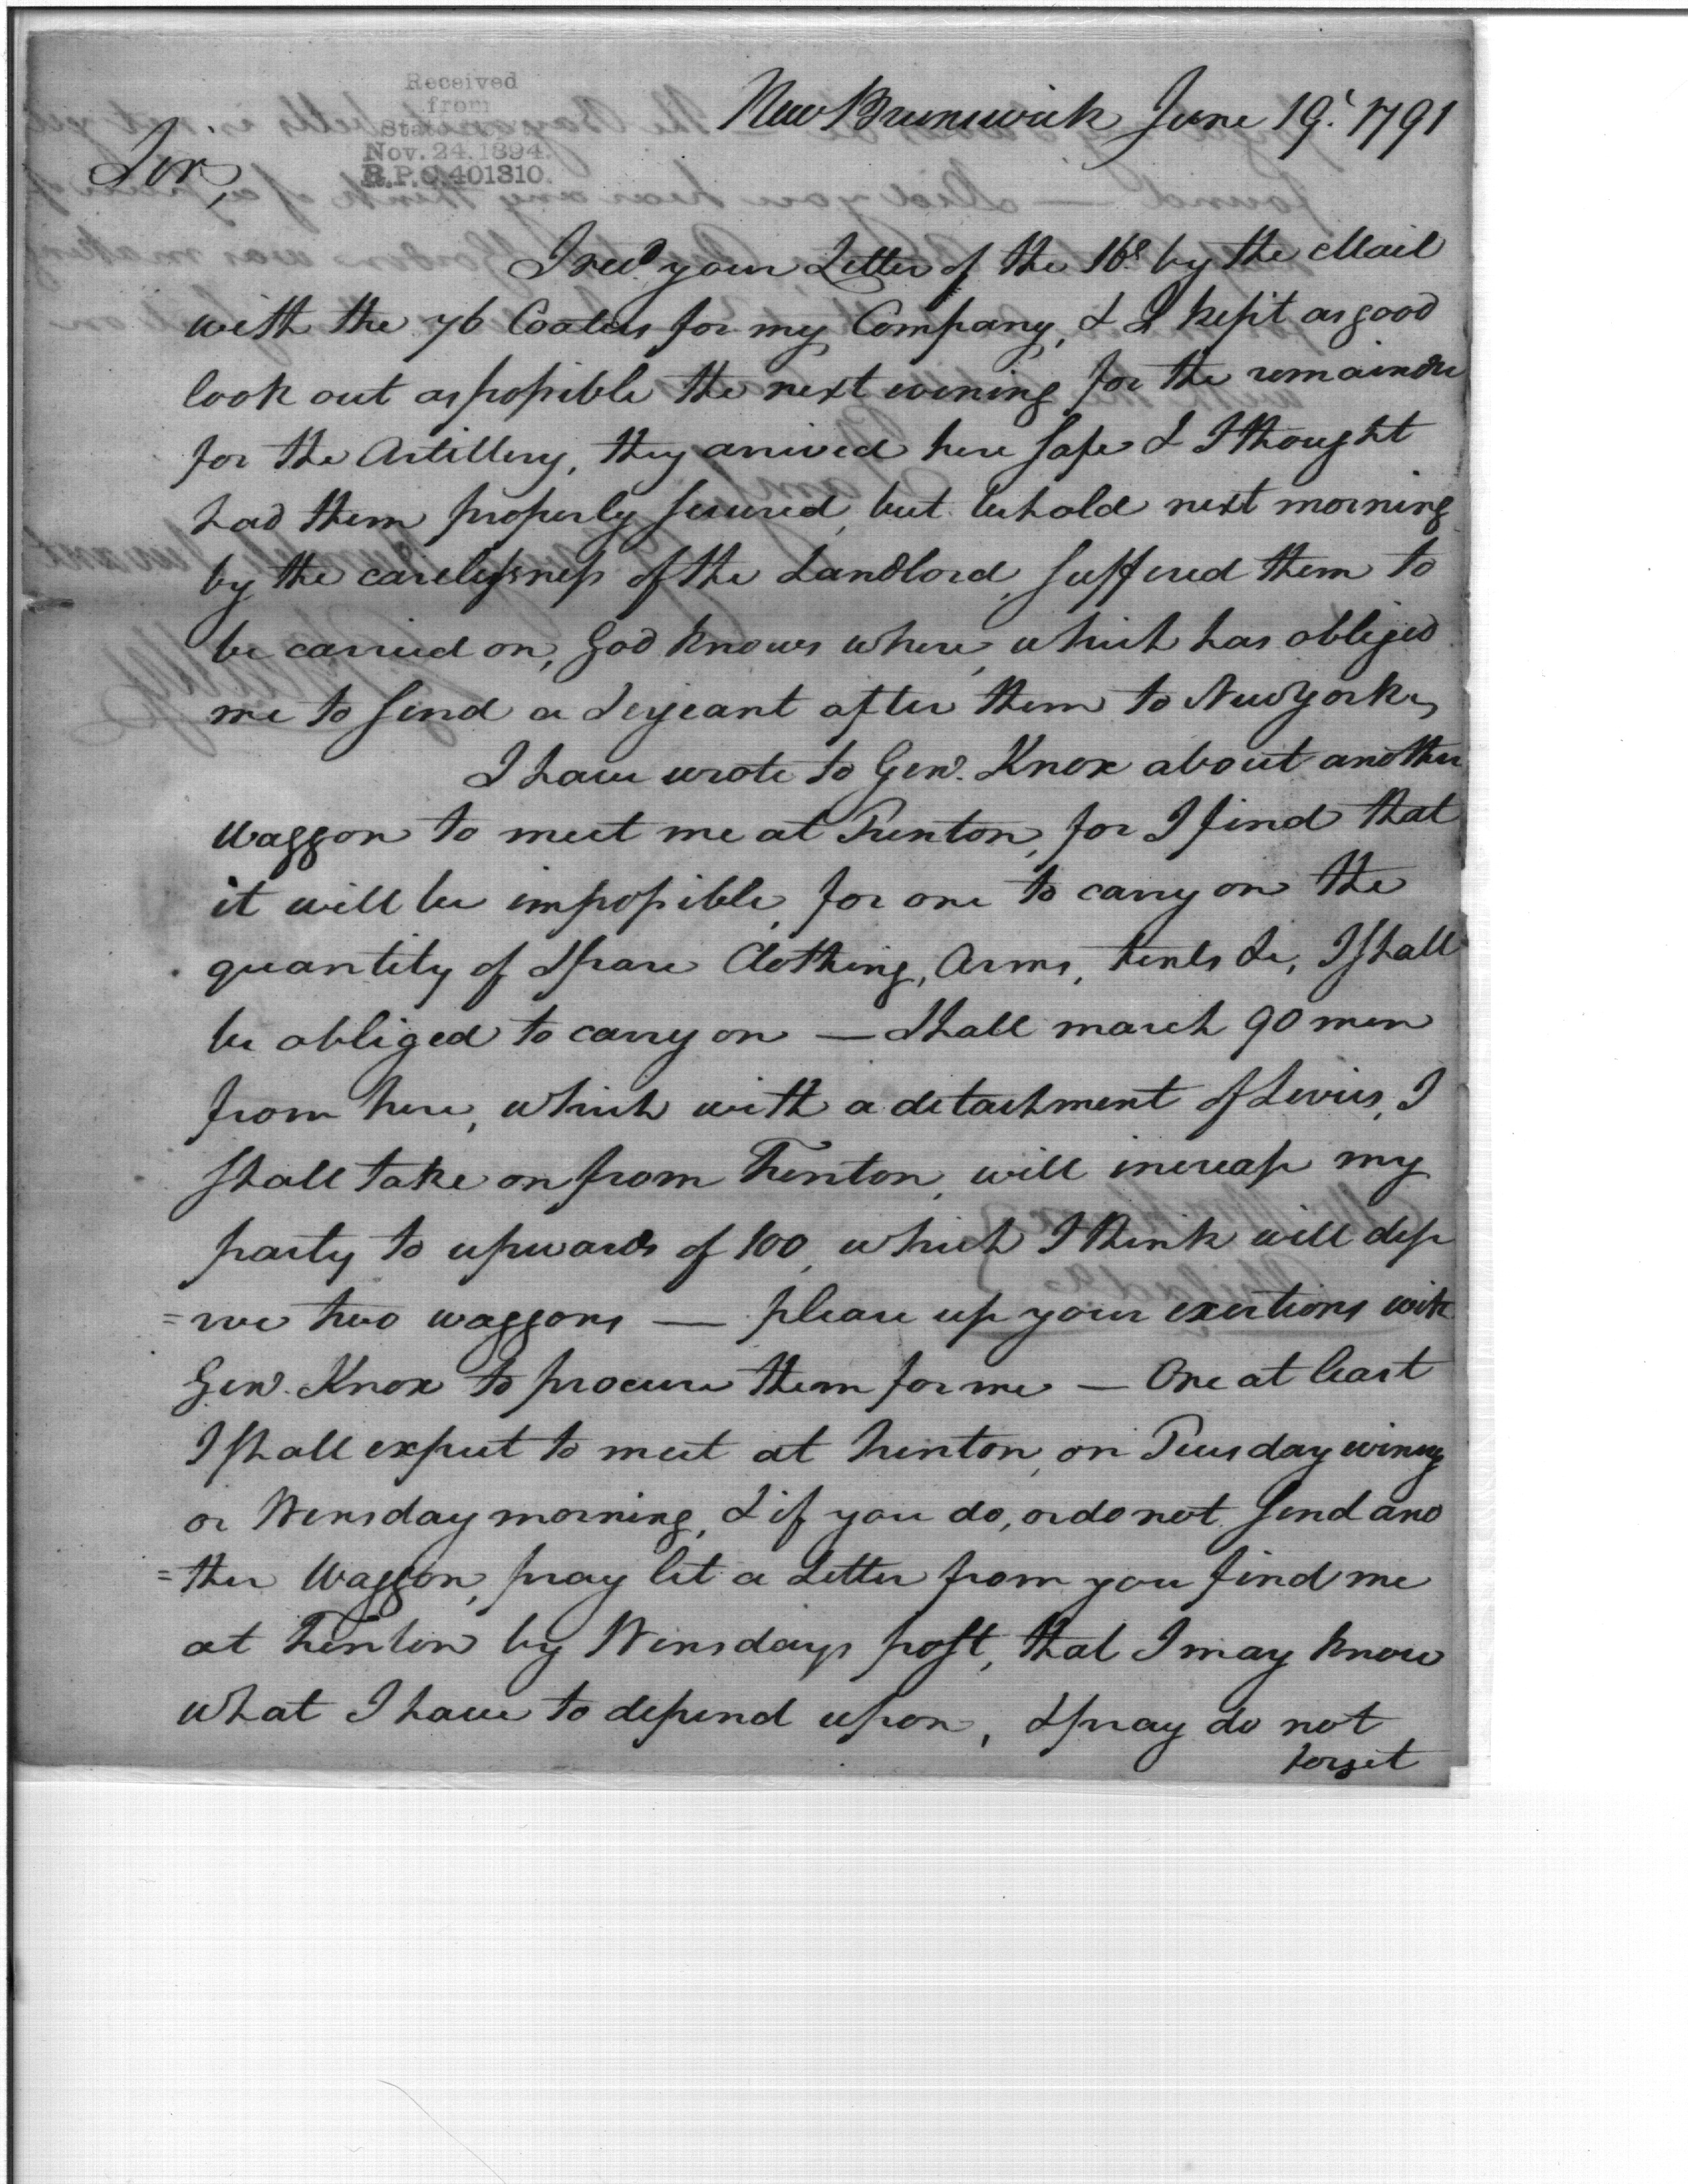 Received
from
State
Nov. 24. 1894.
R.P.O. 401310.
New Brunswick June 19. 1791
Sir,
I recd. your Letter of the 16. by the Mail
with the 76 for my Company, & I kept as good
look out as possible the next evening for the remainder
for the Artillery, they arrived here safe & I thought
had them properly secured, but behold next morning
by the carelessness of the Landlord, suffered them to
be carried on, God knows where, which has obliged
me to send a Serjeant after them to New York,
I have wrote to Genl. Knox about another
Waggon to meet me at Trenton, for I find that
it will be impossible, for one to carry on the
quantity of Spare Clothing, Arms, tents &c, I shall
be obliged to carry on — Shall march 90 men
from here, which with a detachment of Levies, I
shall take on from Trenton, will increase my
party to upwards of 100, which I think will dese
=rve two waggons — please use your exertions with
Genl. Knox to procure them for me — One at least
I shall expect to meet at Trenton, on Tuesday evening
or Wensday morning, & if you do, or do not send ano
=ther Waggon, pray let a Letter from you find me
at Trenton by Wensdays post, that I may know
what I have to depend upon, & pray do not
forget